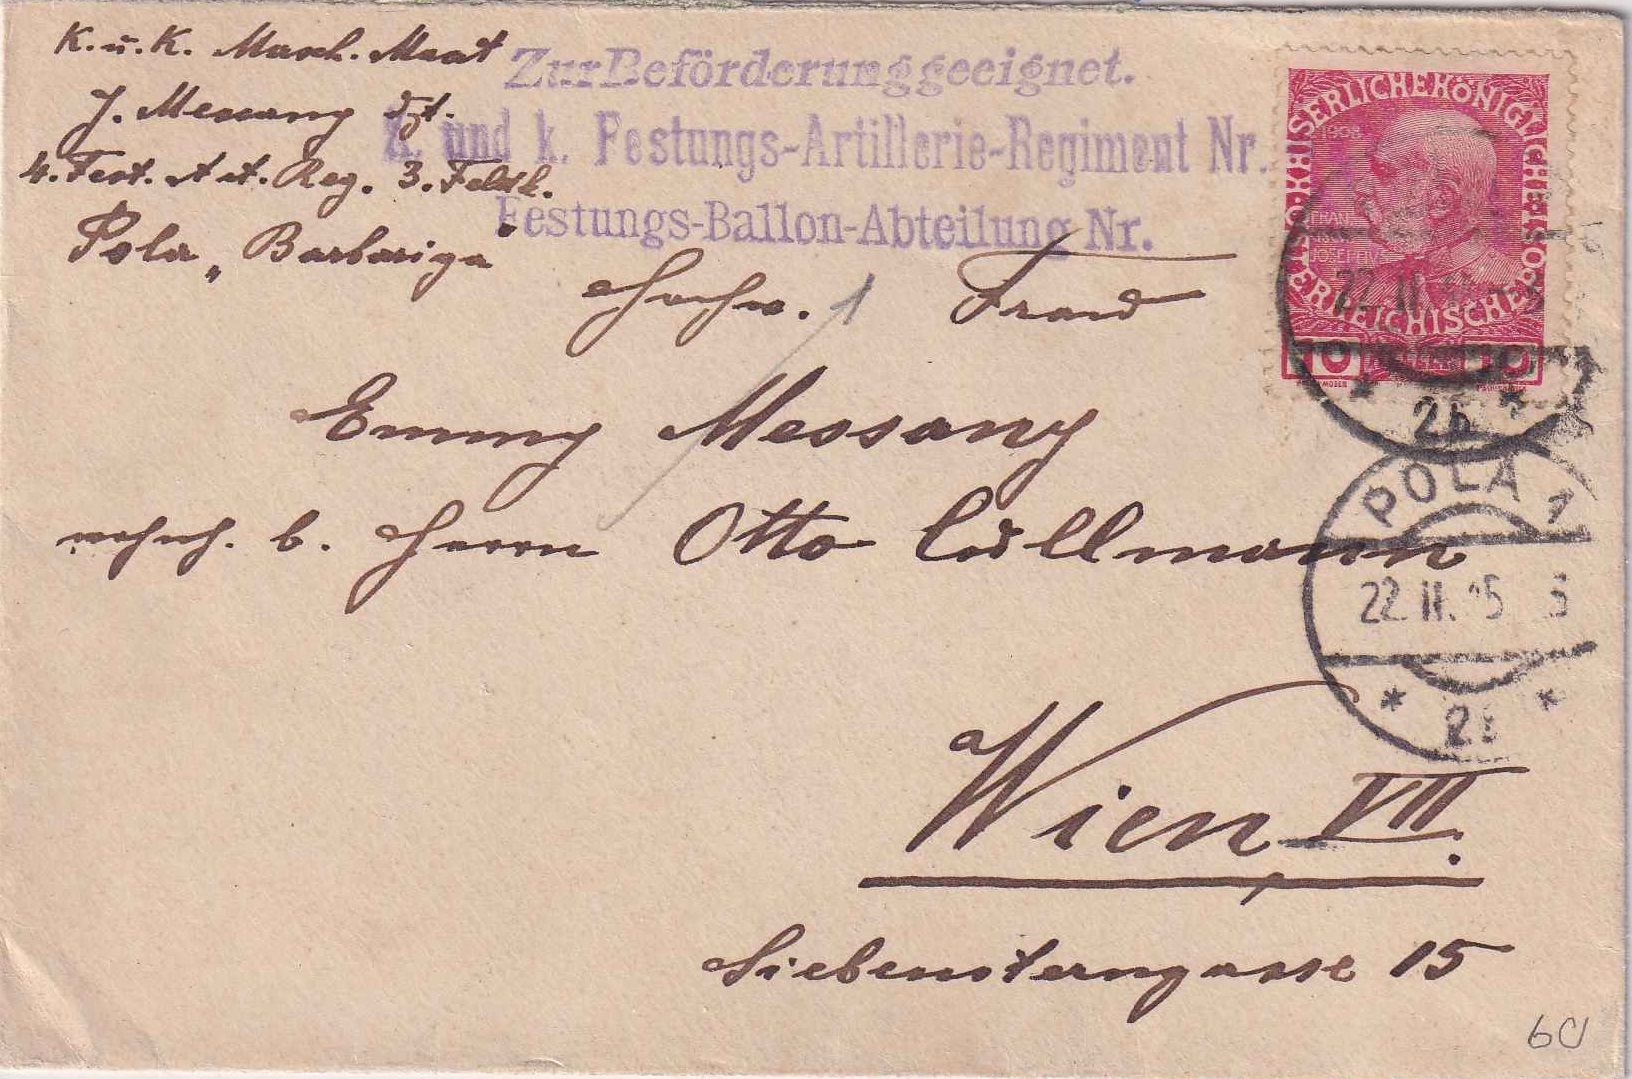 K. u. K. Masch. Maat
J. Messany dzt.
4. Fest. Art. Reg. 3. Feldk.
Pola „Barbariga"
Zur Beförderung geeignet.
K. und k. Festungs-Artillerie-Regiment Nr.
Festungs-Ballon-Abteilung Nr.
1
Hochw. Frau
Emmy Messany
wohnh. b. Herrn Otto Cullmann
Wien VII.
Siebensterngasse 15
KAISERLICHEKÖNIGLICHE ÖSTERREICHISCHE POST
1908
FRANZ
JOSEF I
10 HELLER 10
22. II.
* 2b *
POLA 1
22. II. 15
* 2b *
60